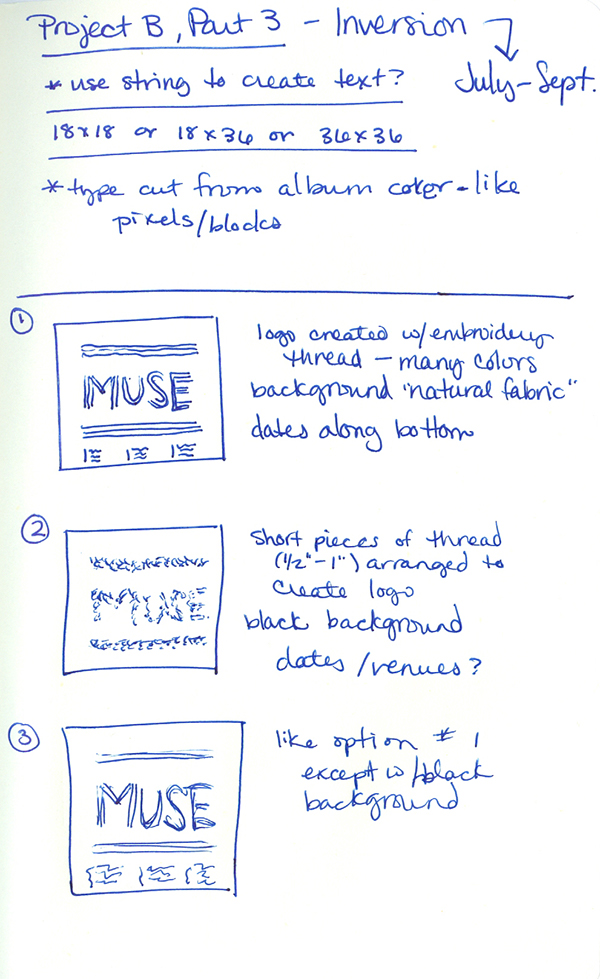 Project B, Part 3 - Inversion
July-Sept.
* use string to create text?
18x18 or 18x36 or 36x36
* type cut from album color-like
pixels/blocks
1
logo created w/embroidery
thread - many colors
background "natural fabric"
dates along bottom
MUSE
2
short pieces of thread
(1/2"-1") arranged to
create logo
black background
dates/venues?
MUSE
3
like option # 1
except w/black
background
MUSE